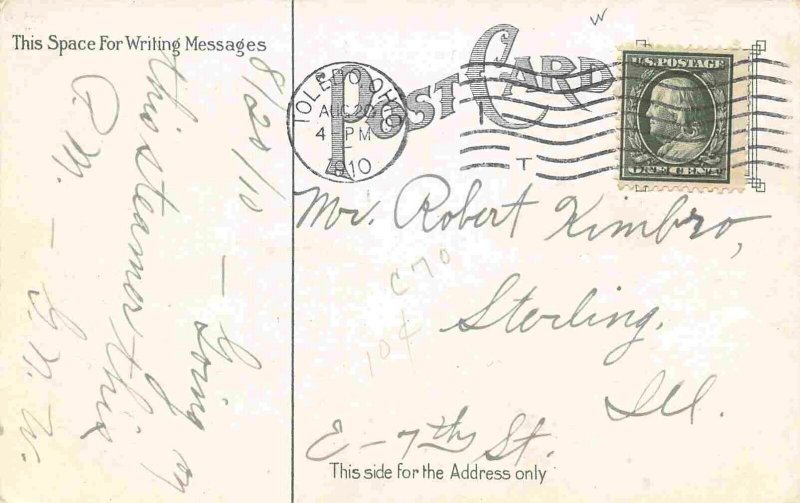 This Space For Writing Messages
8/20/10
— Going on
this steamer this
P.M. — G.V.W.
POST CARD
TOLEDO, OHIO
AUG 20
4 - PM
1910
T
U.S. POSTAGE
ONE CENT
W
Mr. Robert Kimbro,
Sterling,
Ill.
C70
10¢
E - 7th St.
This side for the Address only